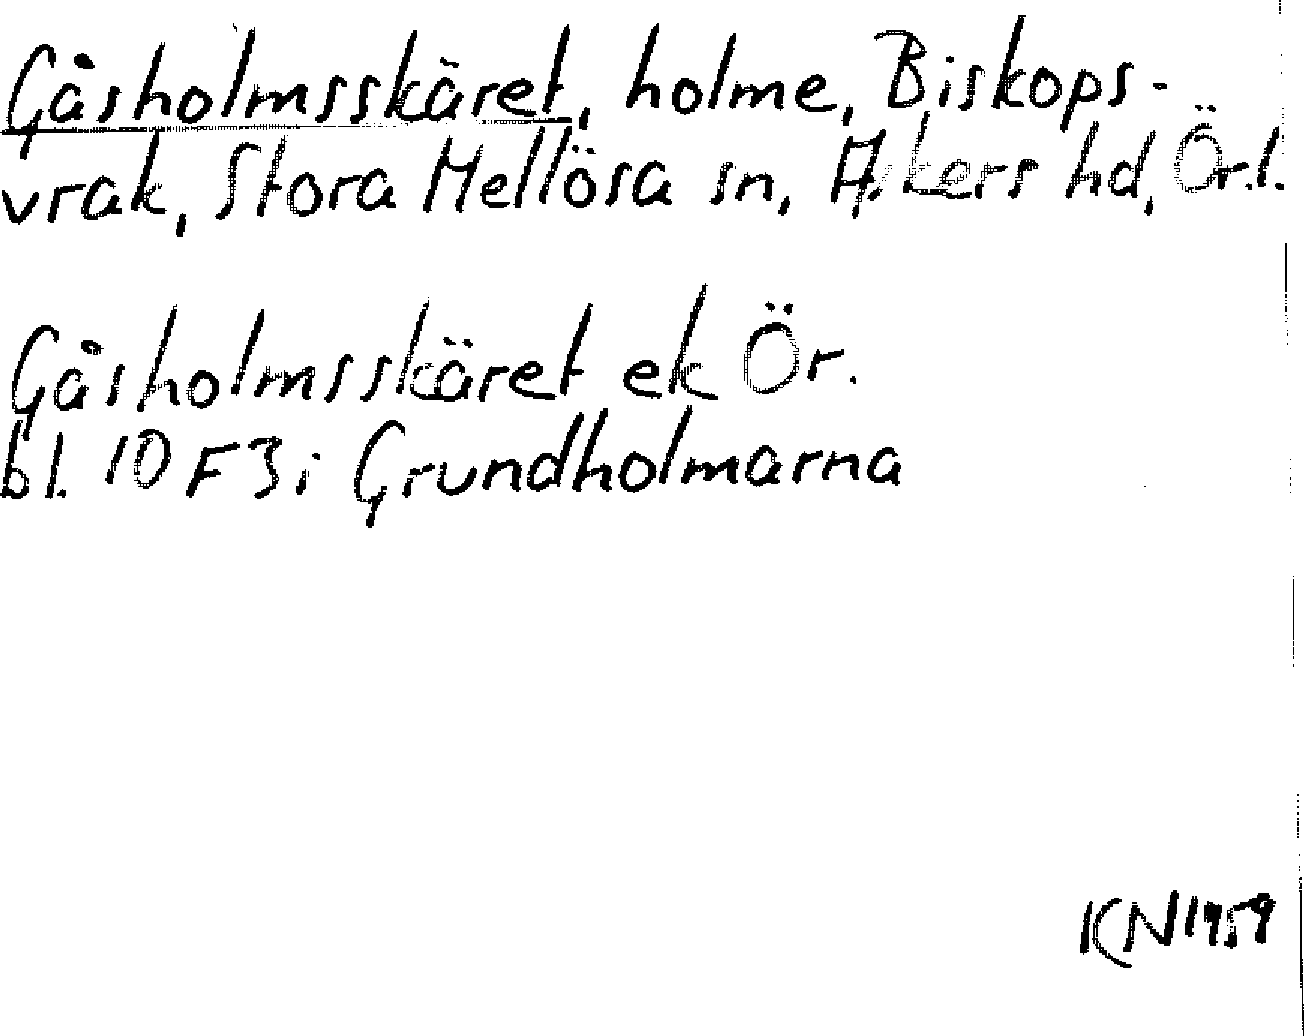 Gåsholmsskäret, holme, Biskops-
vrak, Stora Mellösa sn, Askers hd, Ör.l.
Gåsholmsskäret ek Ör.
bl. 10F3i Grundholmarna
KN 1959